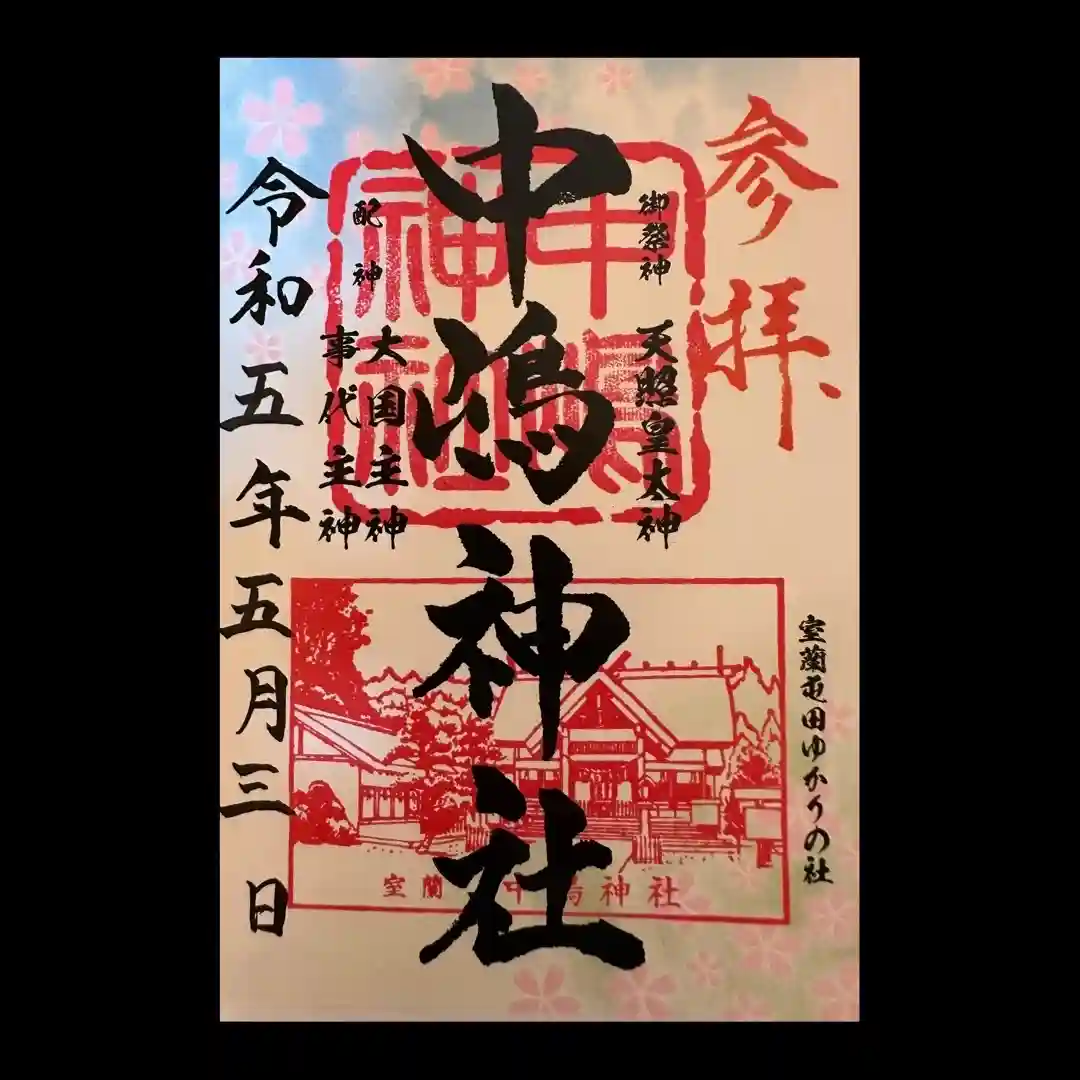 参拝
室蘭屯田ゆかりの社
御祭神 天照皇大神
中嶋神社
配神
大国主神
事代主神
令和五年五月三日
中嶋神社
室蘭 中嶋神社